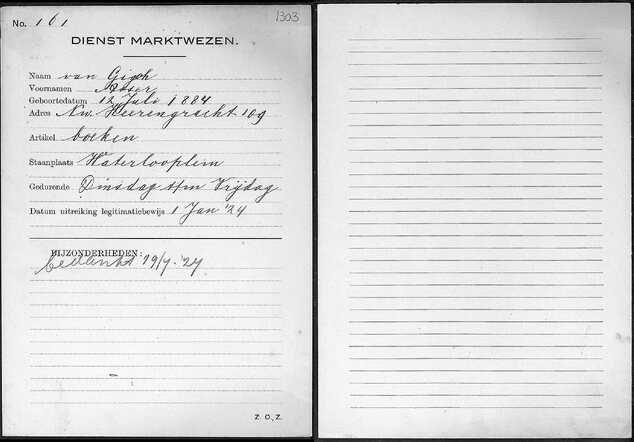 No. 161
1303
DIENST MARKTWEZEN.
Naam van Gigch
Voornamen Asser
Geboortedatum 12 Juli 1884
Adres Nw. Heerengracht 109
Artikel boeken
Staanplaats Waterlooplein
Gedurende Dinsdag t/m Vrijdag
Datum uitreiking legitimatiebewijs 1 Jan '24
BIJZONDERHEDEN:
bedankt 19/7-'27
Z. O. Z.